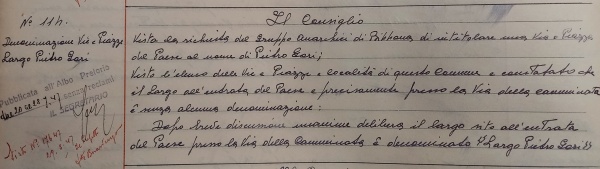 N° 114.
Denominazione Vie e Piazze
Largo Pietro Gori
Pubblicata all'Albo Pretorio
senza opposizioni
IL SEGRETARIO
Il Consiglio
Vista la richiesta del Gruppo Anarchici di Bibbona di intitolare una Via o Piazza
del Paese al nome di Pietro Gori;
Visto l'elenco delle Vie e Piazze e località di questo Comune e constatato che
il Largo all'entrata del Paese e precisamente presso la Via della Camminata
è senza alcuna denominazione:
Dopo breve discussione unanime delibera il largo sito all'entrata
del Paese presso la Via della Camminata è denominato "Largo Pietro Gori"